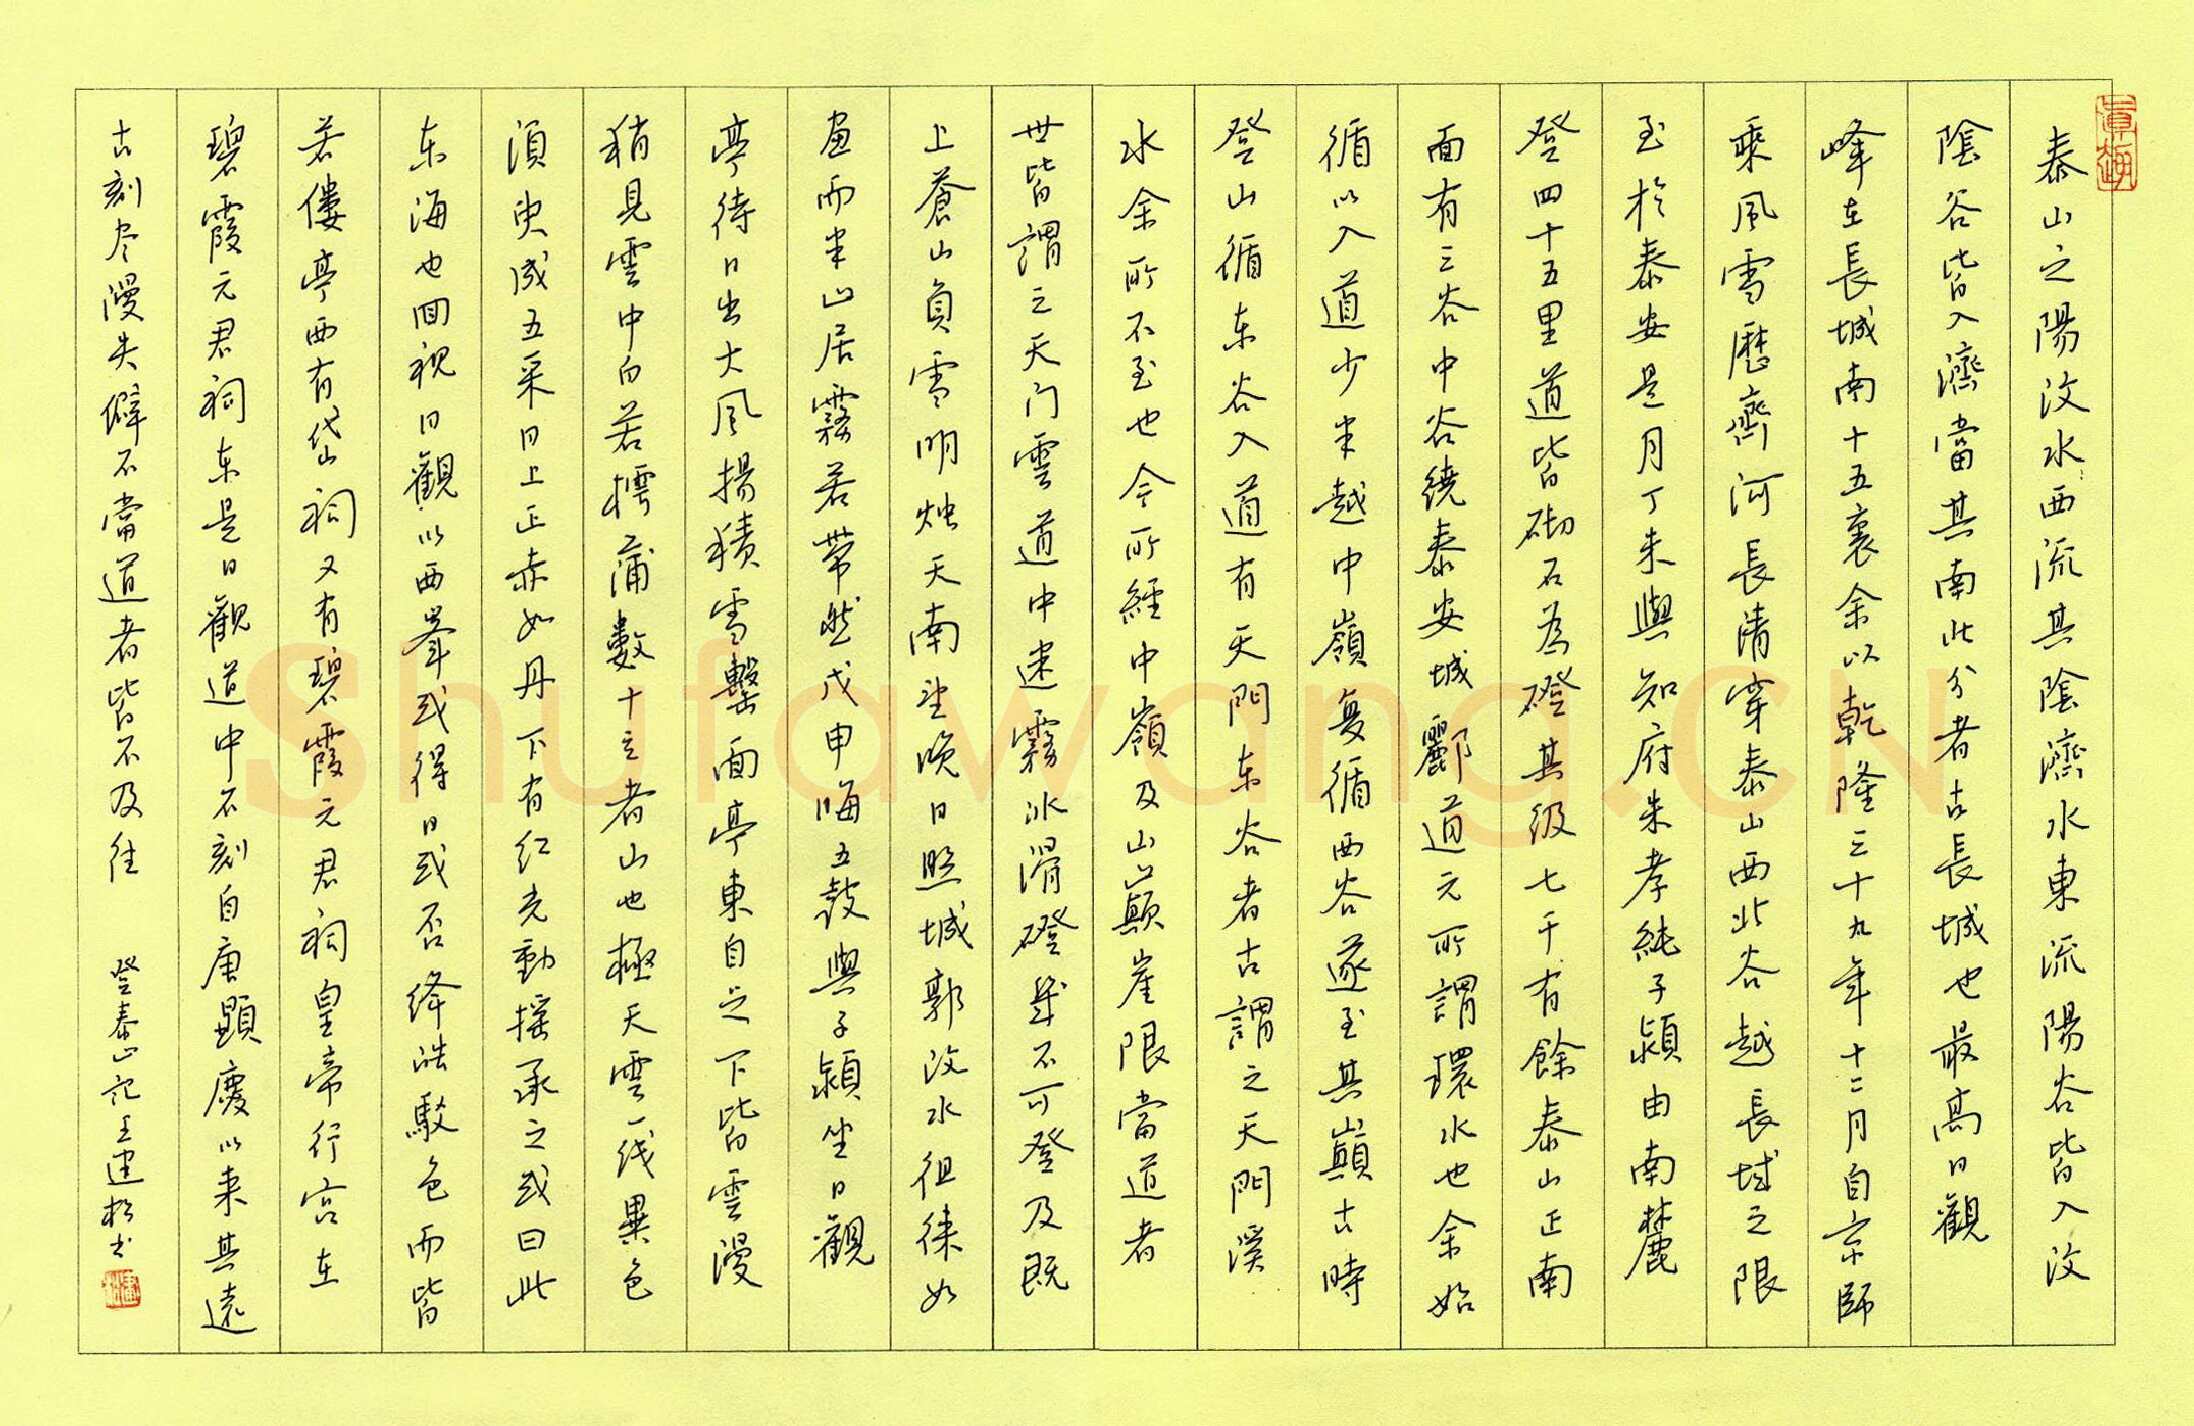 泰山之陽汶水西流其陰濟水東流陽谷皆入汶
陰谷皆入濟當其南北分者古長城也最高日觀
峰在長城南十五裏余以乾隆三十九年十二月自京師
乘風雪歷齊河長清穿泰山西北谷越長城之限
至於泰安是月丁未與知府朱孝純子潁由南麓
登四十五里道皆砌石為磴其級七千有餘泰山正南
面有三谷中谷繞泰安城酈道元所謂環水也余始
循以入道少半越中嶺复循西谷遂至其巔古時
登山循东谷入道有天門东谷者古謂之天門溪
水余所不至也今所經中嶺及山巔崖限當道者
世皆謂之天门雲道中迷霧冰滑磴幾不可登及既
上蒼山負雪明烛天南望晚日照城郭汶水徂徕如
畫而半山居霧若帶然戊申晦五鼓與子潁坐日觀
亭待日出大風揚積雪擊面亭東自足下皆雲漫
稍見雲中白若樗蒲數十立者山也極天雲一线異色
須臾成五采日上正赤如丹下有红光動摇承之或曰此
东海也回視日觀以西峯或得日或否绛皓駁色而皆
若僂亭西有岱祠又有碧霞元君祠皇帝行宫在
碧霞元君祠东是日觀道中石刻自唐顯慶以来其遠
古刻尽漫失僻不當道者皆不及往 登泰山記王建松书
Shufawang.CN